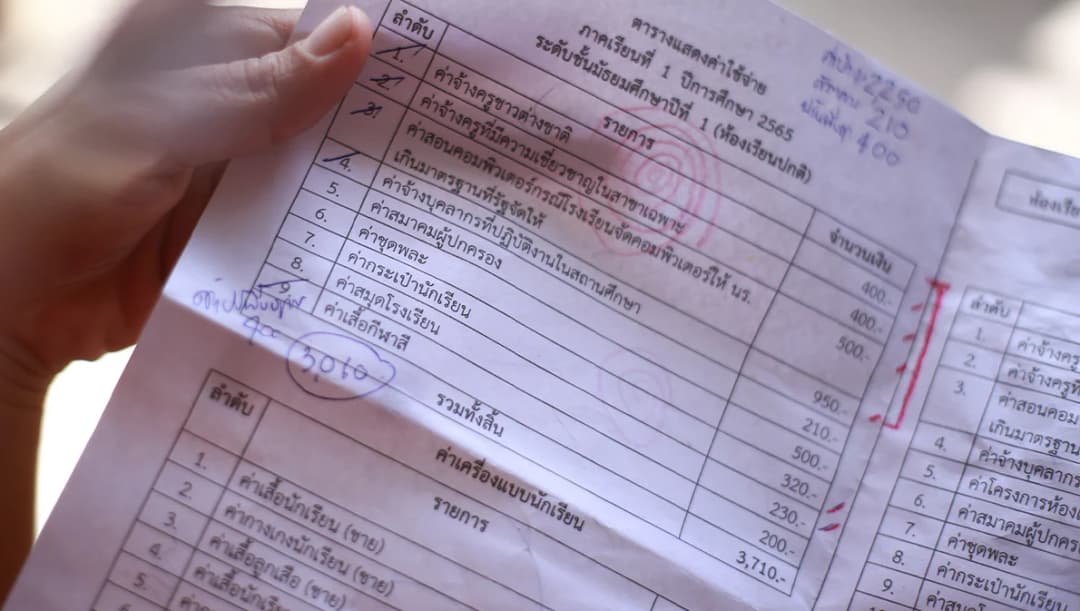 ตารางแสดงค่าใช้จ่าย
ภาคเรียนที่ 1 ปีการศึกษา 2565
ระดับชั้นมัธยมศึกษาปีที่ 1 (ห้องเรียนปกติ)
2250
210
400
ลำดับ รายการ จำนวนเงิน
1. ค่าจ้างครูชาวต่างชาติ 400.-
2. ค่าจ้างครูที่มีความเชี่ยวชาญในสาขาเฉพาะ 400.-
3. ค่าสอนคอมพิวเตอร์กรณีโรงเรียนจัดคอมพิวเตอร์ให้ นร. 500.-
เกินมาตรฐานที่รัฐจัดให้
4. ค่าจ้างบุคลากรที่ปฏิบัติงานในสถานศึกษา 950.-
5. ค่าสมาคมผู้ปกครอง 210.-
6. ค่าชุดพละ 500.-
7. ค่ากระเป๋านักเรียน 320.-
8. ค่าสมุดโรงเรียน 230.-
9. ค่าเสื้อกีฬาสี 200.-
รวมทั้งสิ้น 3,710.-
3,010
ค่าเครื่องแบบนักเรียน
ลำดับ รายการ
1. ค่าเสื้อนักเรียน (ชาย)
2. ค่ากางเกงนักเรียน (ชาย)
3. ค่าเสื้อลูกเสือ (ชาย)
4.
5.
ห้องเรีย
ลำดับ
1. ค่าจ้างครู
2. ค่าจ้างครูที่
3. ค่าสอนคอม
เกินมาตรฐาน
4. ค่าจ้างบุคลากร
5. ค่าโครงการห้องเ
6. ค่าสมาคมผู้ปกคร
7. ค่าชุดพละ
8. ค่ากระเป๋านักเรีย
9.